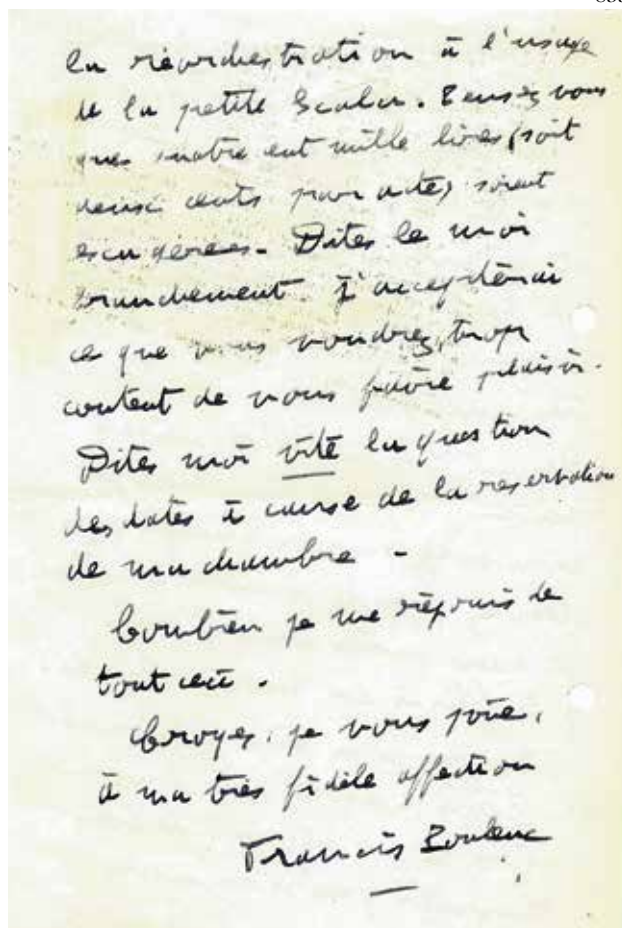 la réorchestration à l'usage
de la petite Scala. Pensez vous
que quatre cent mille lires (soit
deux cents par acte) soient
exagérées. Dites le moi
franchement. J'accepterai
ce que vous voudrez, trop
content de vous faire plaisir.
Dites moi vite la question
des dates à cause de la reservation
de ma chambre -
Combien je me réjouis de
tout ceci.
Croyez, je vous prie,
à ma très fidèle affection
Francis Poulenc